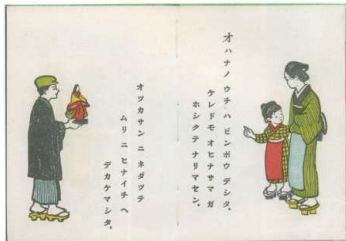 オハナノ ウチ ハ ビンボウ デシタ。
ケレドモ オヒナサマ ガ
ホシクテ ナリマセン。
オツカサン ニ ネダツテ
ムリ ニ ヒナイチ ヘ
デカケマシタ。